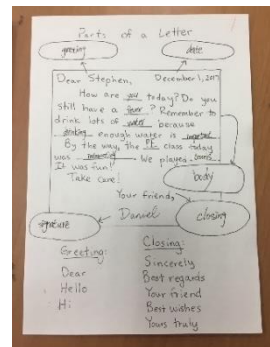 Parts of a Letter
greeting date
Dear Stephen, December 1, 2017
How are you today? Do you
still have a fever? Remember to
drink lots of water because
drinking enough water is important.
By the way, the PE class today
was We played
It was fun!
Take care!
body
Your friend,
signature Daniel closing
Greeting: Closing:
Dear Sincerely
Hello Best regards
Hi Your friend
Best wishes
Yours truly